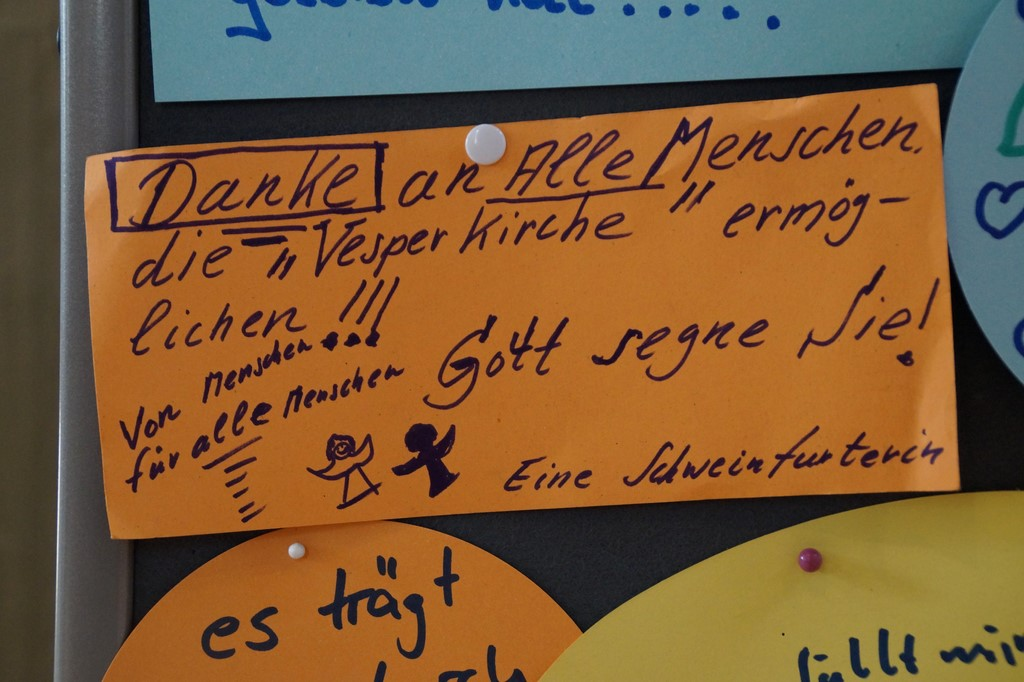 Danke an Alle Menschen,
die "Vesperkirche" ermög-
lichen !!!
Gott segne Sie!
Von Menschen...
für alle Menschen
Eine Schweinfurterin
es trägt
füllt mir